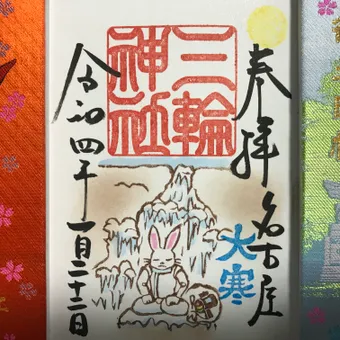 奉拝
名古屋
大寒
三輪
神社
令和四年一月二十二日